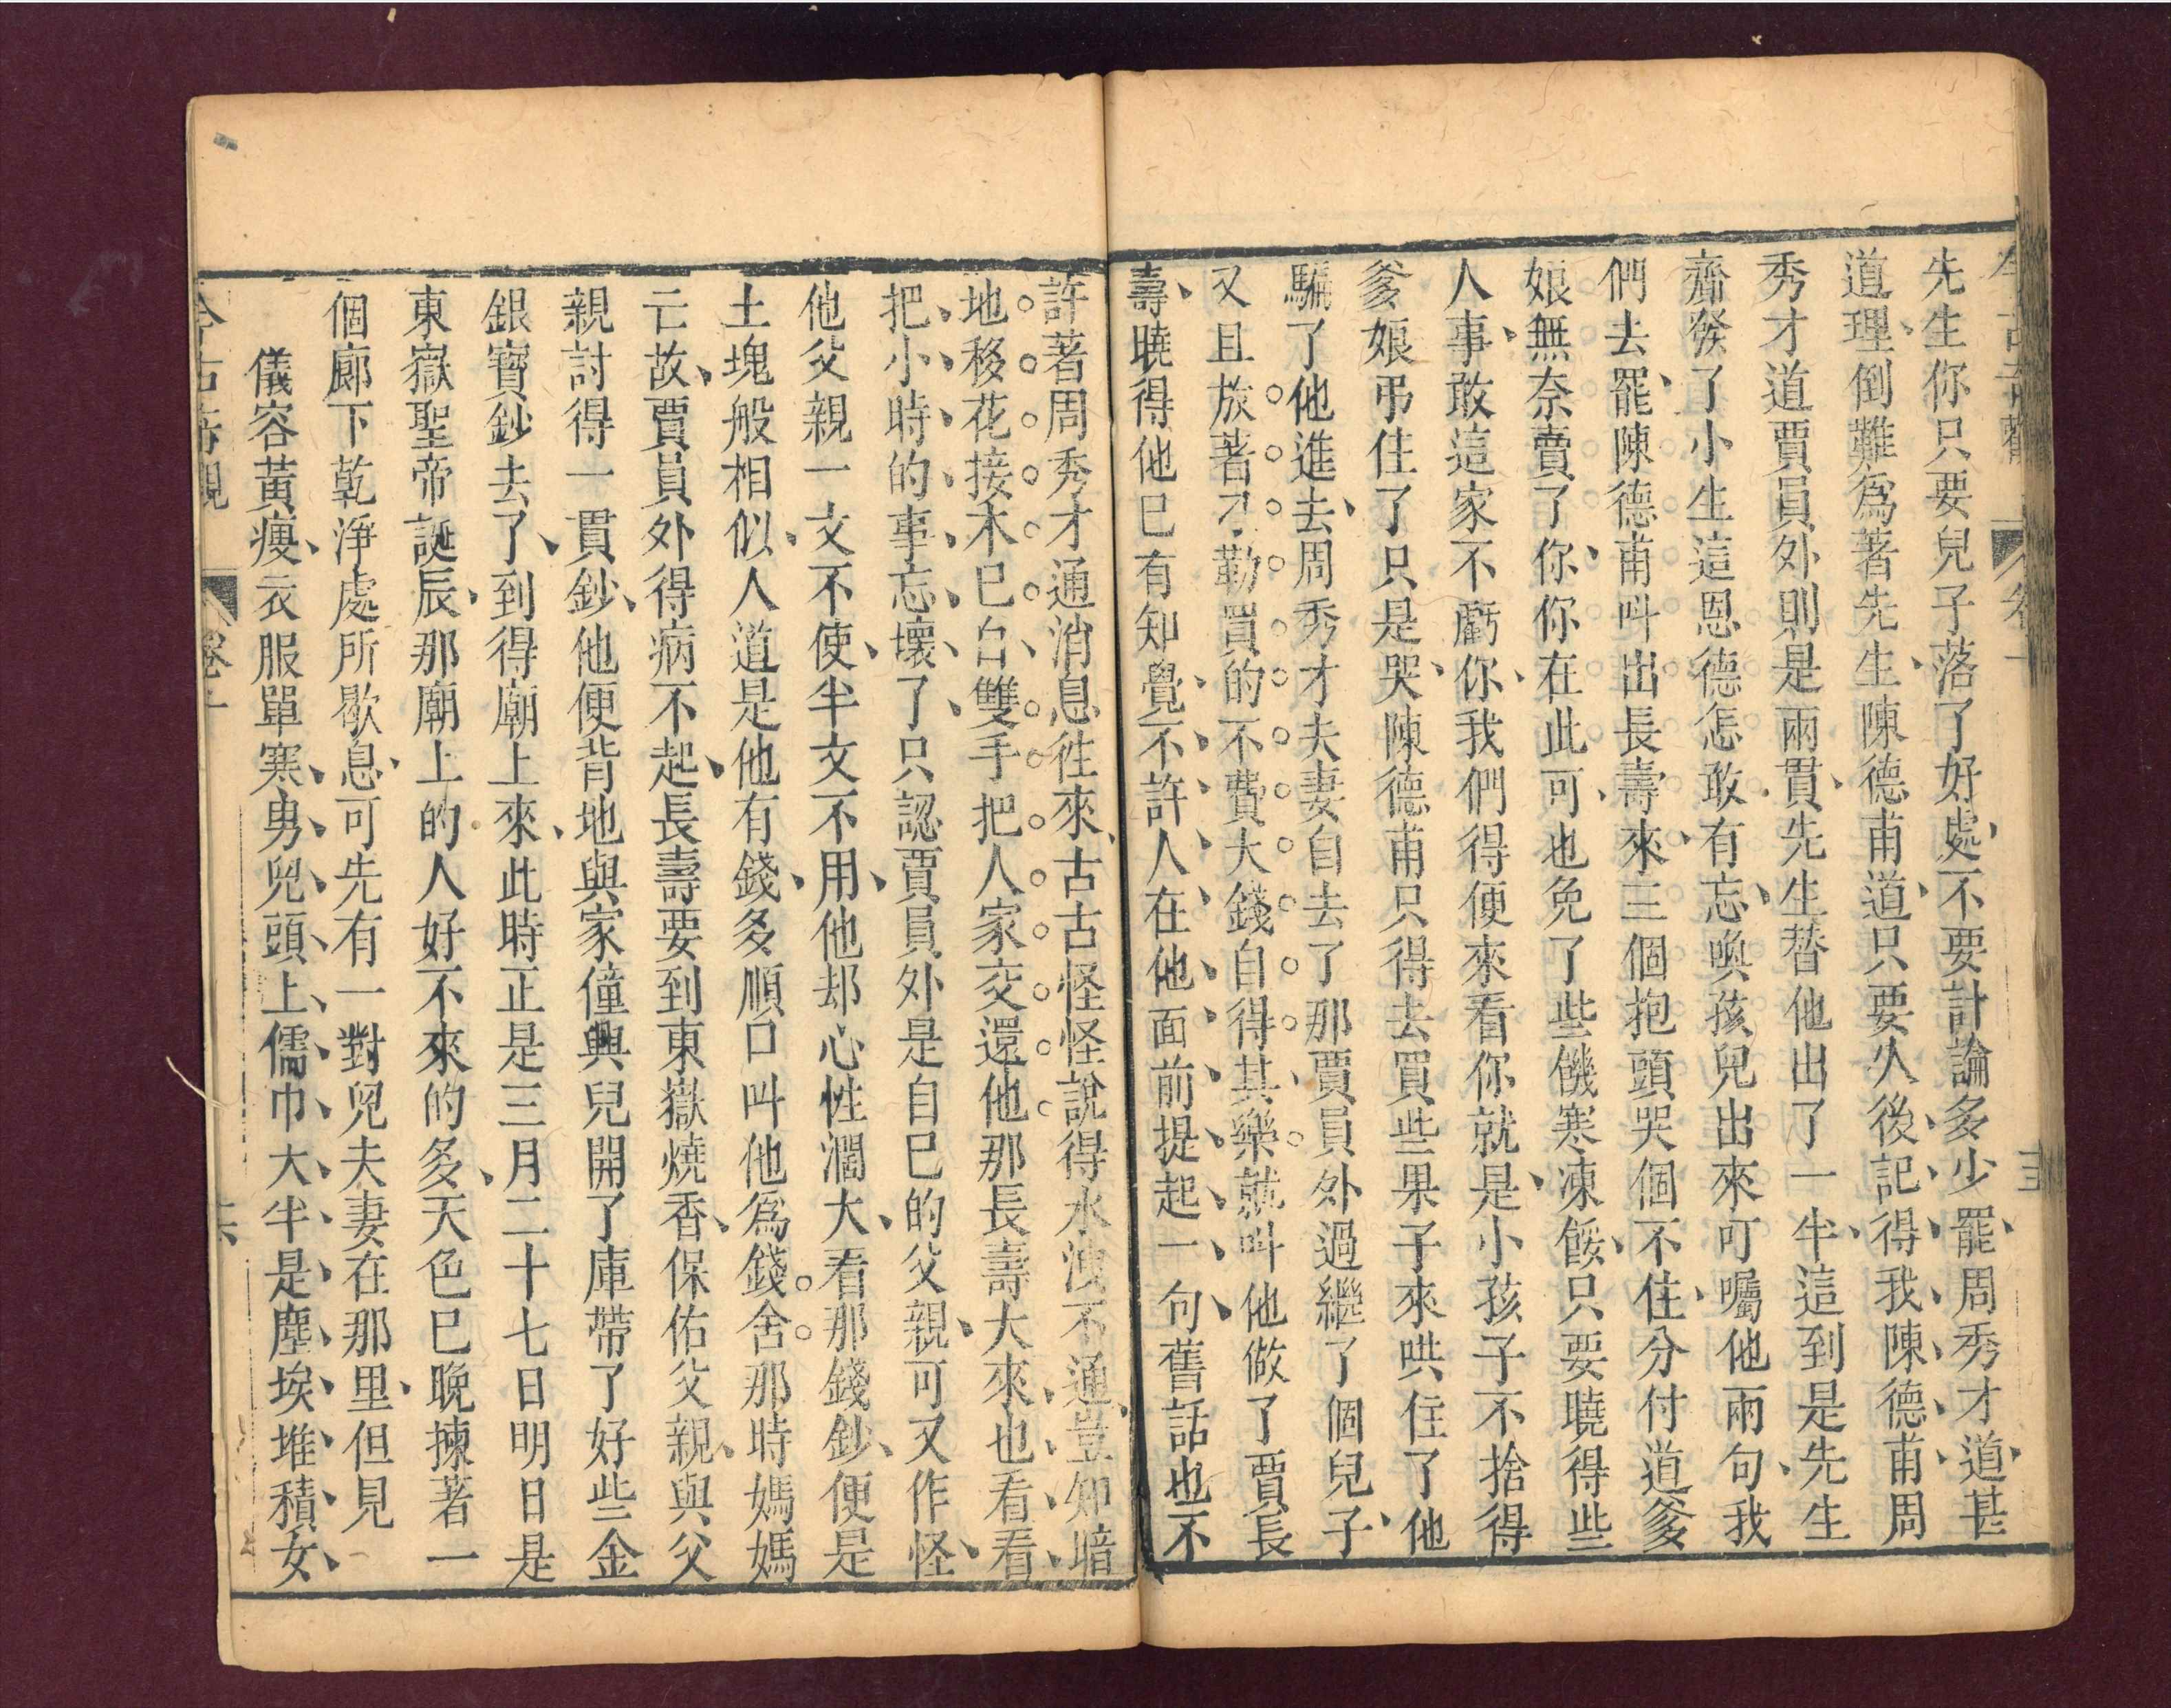 先生你只要兒子落了好處不要計論多少罷周秀才道甚
道理倒難爲著先生陳德甫道只要久後記得我陳德甫周
秀才道賈員外則是兩貫先生替他出了一半這到是先生
齎發了小生這恩德怎敢有忘喚孩兒出來叮囑他兩句我
們去罷陳德甫叫出長壽來三個抱頭哭個不住分付道爹
娘無奈賣了你你在此可也免了些饑寒凍餒只要曉得些
人事敢這家不虧你我們得便來看你就是小孩子不捨得
爹娘弔住了只是哭陳德甫只得去買些果子來哄住了他
騙了他進去周秀才夫妻自去了那賈員外過繼了個兒子
又且放著刁勒買的不費大錢自得其樂就叫他做了賈長
壽曉得他已有知覺不許人在他面前提起一句舊話也不
許著周秀才通消息往來古古怪怪說得水洩不通豈知暗
地移花接木已自雙手把人家交還他那長壽大來也看看
把小時的事忘壞了只認賈員外是自己的父親可又作怪
他父親一文不使半文不用他却心性濶大看那錢鈔便是
土塊般相似人道是他有錢多順口叫他爲錢舍那時媽媽
亡故賈員外得病不起長壽要到東嶽燒香保佑父親與父
親討得一貫鈔他便背地與家僮興兒開了庫帶了好些金
銀寶鈔去了到得廟上來此時正是三月二十七日明日是
東嶽聖帝誕辰那廟上的人好不來的多天色已晚揀著一
個廊下乾淨處所歇息可先有一對兒夫妻在那里但見
儀容黃瘦衣服單寒男兒頭上儒巾大半是塵埃堆積女
今古奇觀 卷十 六